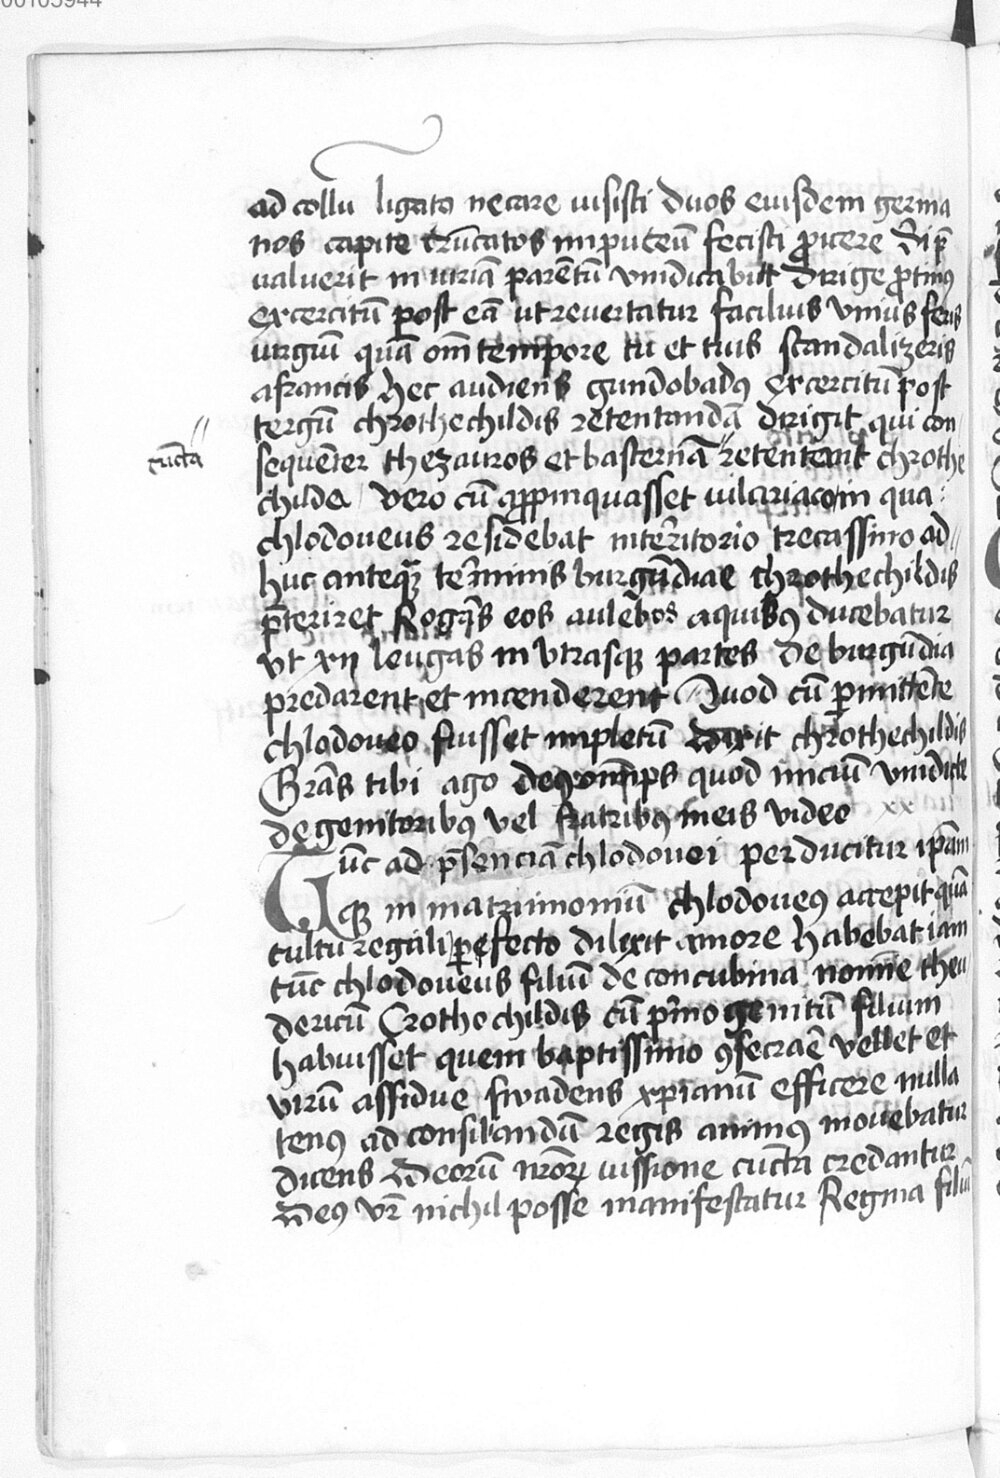 00105944
ad collū ligato necare iusisti duos eiusdem germa
nos capite trūcatos in puteū fecisti ꝓicere Si p̄
ualuerit iniuriā parētū vindicabūt dirige ꝓtinꝰ
excercitū post eā ut reuertatur facilius vnius feris
iurgiū quā om̄ tempore tu et tuis scandalizeris
a francis hec audiens gundobadꝰ excercitū post
tergū chrothechildis retentandā dirigit qui con
cūcta
sequēter thezauros et basternā retentexit chrothe
childe vero cū appinquasset uilariaco in qua
chlodoueus residebat interitorio trecassino ad
huc anteqꝫ terminis burgūdiae chrothechildis
p̄teriret Rogās eos aulēbos a quibꝰ ducebatur
vt xii leugas in utrasqꝫ partes de burgūdia
predarent et incenderent Quod cū ꝑmittēte
chlodoueo fuisset impletū dixit chrothechildis
Grās tibi ago deꝰ om̄ps quod iniciū vindicte
de genitoribꝰ vel fratribꝰ meis video
Tūc ad p̄senciā chlodouei perducitur ip̄am
qꝫ in matrimoniū chlodoueꝰ accepit quā
cultu regali perfecto dilexit amore habebat iam
tūc chlodoueus filiū de concubina nomīe theu
dericū Crothechildis cū p̄mogenitū filium
habuisset quem baptissimo ꝯsecrāē vellet et
virū assidue swadens xp̄ianū efficere nulla
tenꝰ ad consiliandū regis animꝰ mouebatur
dicens Deorū nr̄oꝝ iussione cūcta credantur
deꝰ vr̄ nichil posse manifestatur Regina filiū